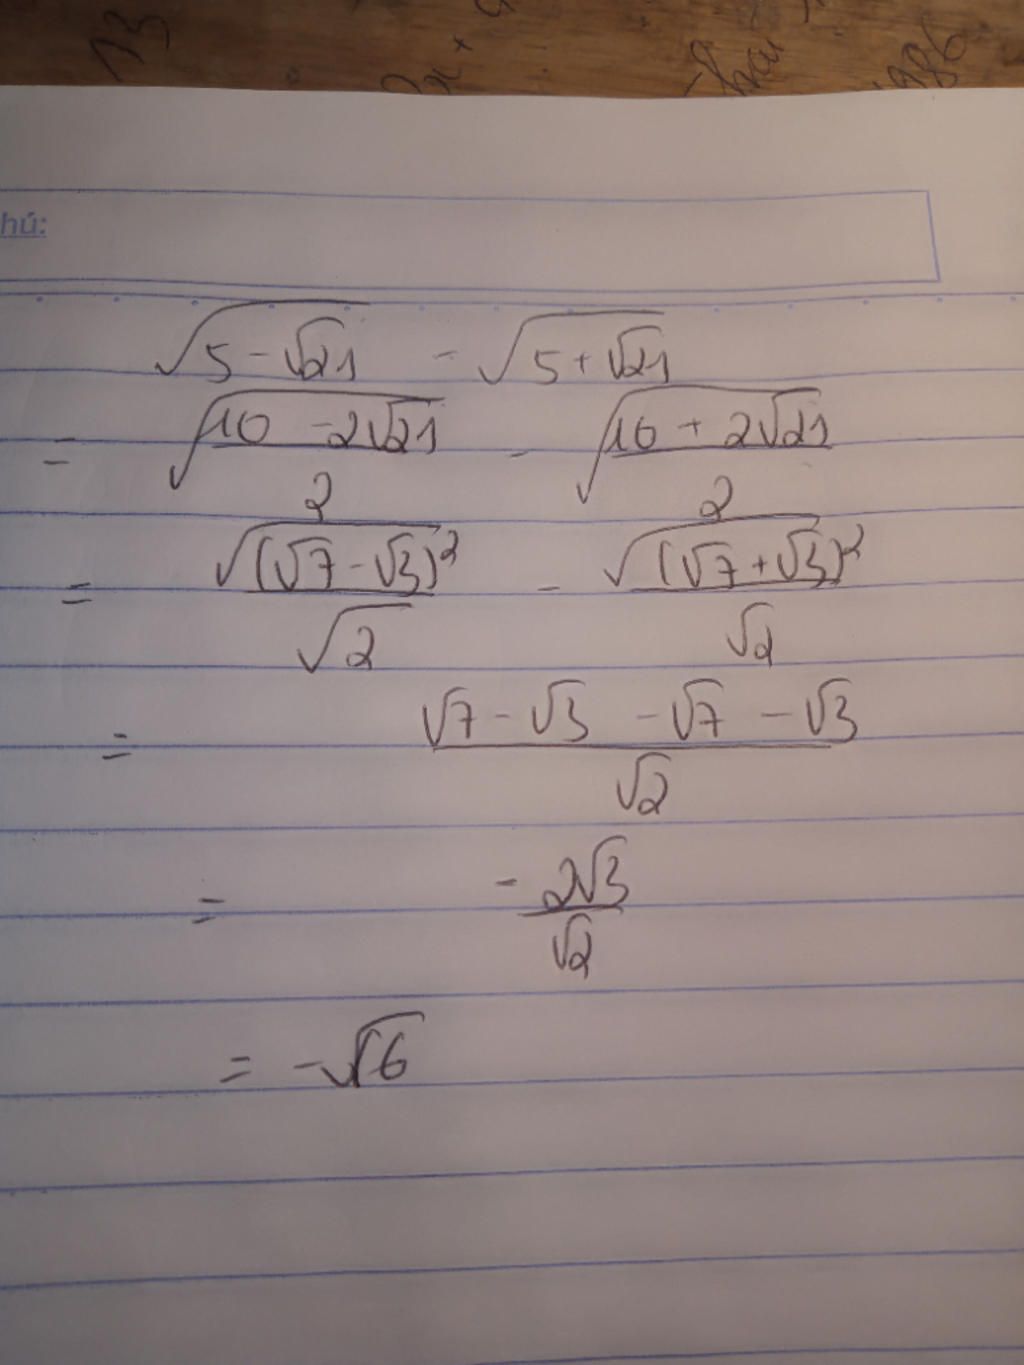 13
hú:
√(5 - √21) - √(5 + √21)
= √((10 - 2√21)/2) - √((10 + 2√21)/2)
= √((√7 - √3)²)/√2 - √((√7 + √3)²)/√2
= (√7 - √3 - √7 - √3)/√2
= -2√3/√2
= -√6